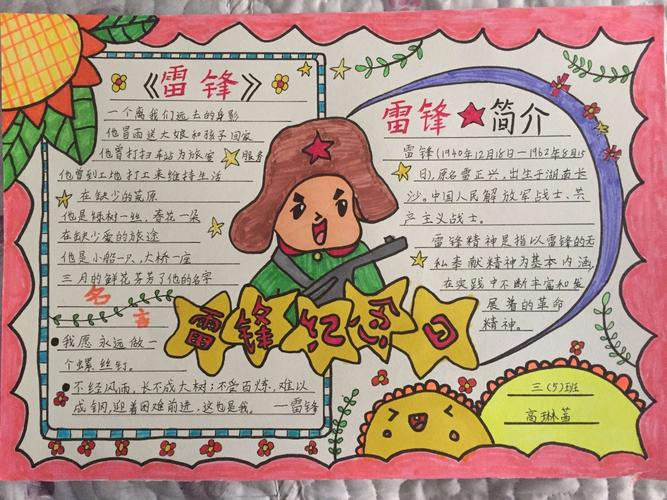 《雷锋》
一个离我们远去的身影
他冒雨送大娘和孩子回家
他曾打扫车站为旅客服务
他曾到工地打工来维持生活
在缺少的荒原
他是绿树一丝，春花一朵
在缺少爱的旅途
他是小船一只，大桥一座
三月的鲜花芬芳了他的名字
名言
我愿永远做一
个螺丝钉。
不经风雨，长不成大树；不受百炼，难以
成钢，迎着困难前进，这也是我。——雷锋
雷锋纪念日
雷锋★简介
雷锋（1940年12月18日—1962年8月15
日），原名雷正兴，出生于湖南长
沙。中国人民解放军战士、共
产主义战士。
雷锋精神是指以雷锋的无
私奉献精神为基本内涵，
在实践中不断丰富和发
展着的革命
精神。
三（5）班
高琳